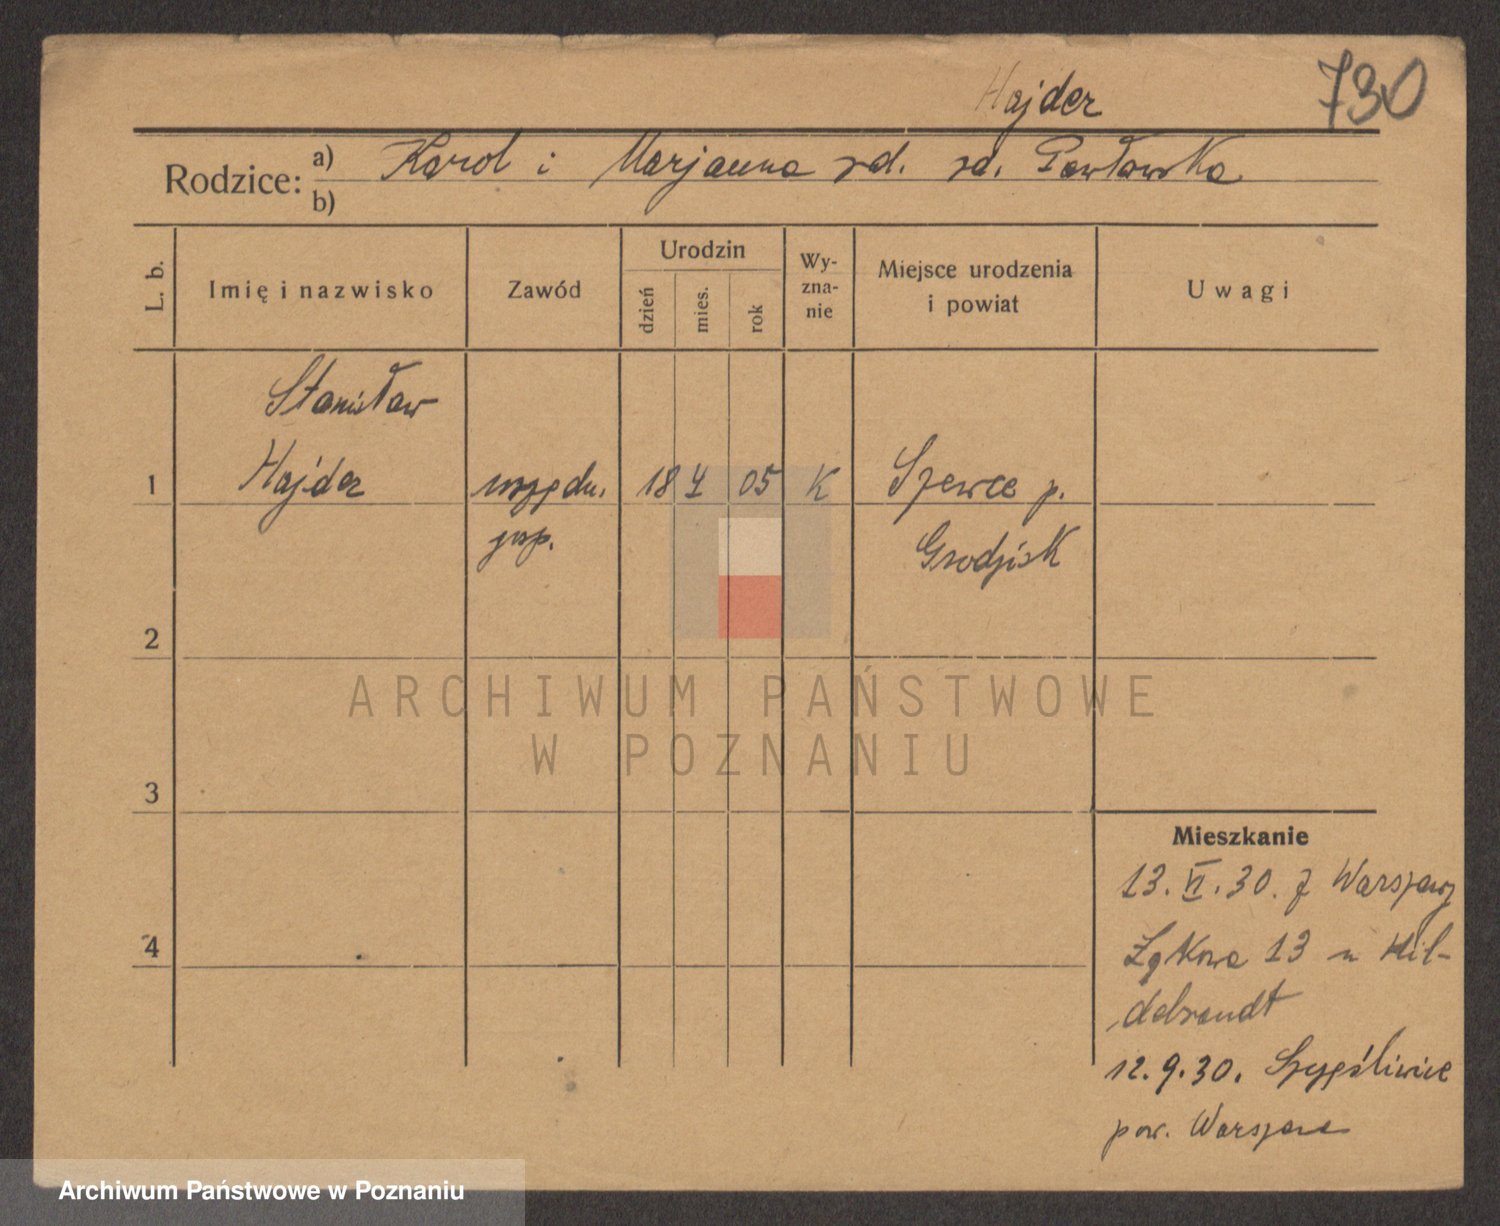 Hajder 730
Rodzice: a) Karol i Marjanna zd. zd. Pawłowska
b)
L. b. Imię i nazwisko Zawód Urodzin dzień mies. rok Wy-zna-nie Miejsce urodzenia i powiat Uwagi
Stanisław
1 Hajder urzędn. 18 4 05 K Szewce p.
gosp. Grodzisk
2
ARCHIWUM PAŃSTWOWE
W POZNANIU
3
Mieszkanie
13. VI. 30. z Warszawy
4 Łąkowa 13 u Hil-
debrandt
12. 9. 30. Szczęśliwice
pow. Warszawa
Archiwum Państwowe w Poznaniu